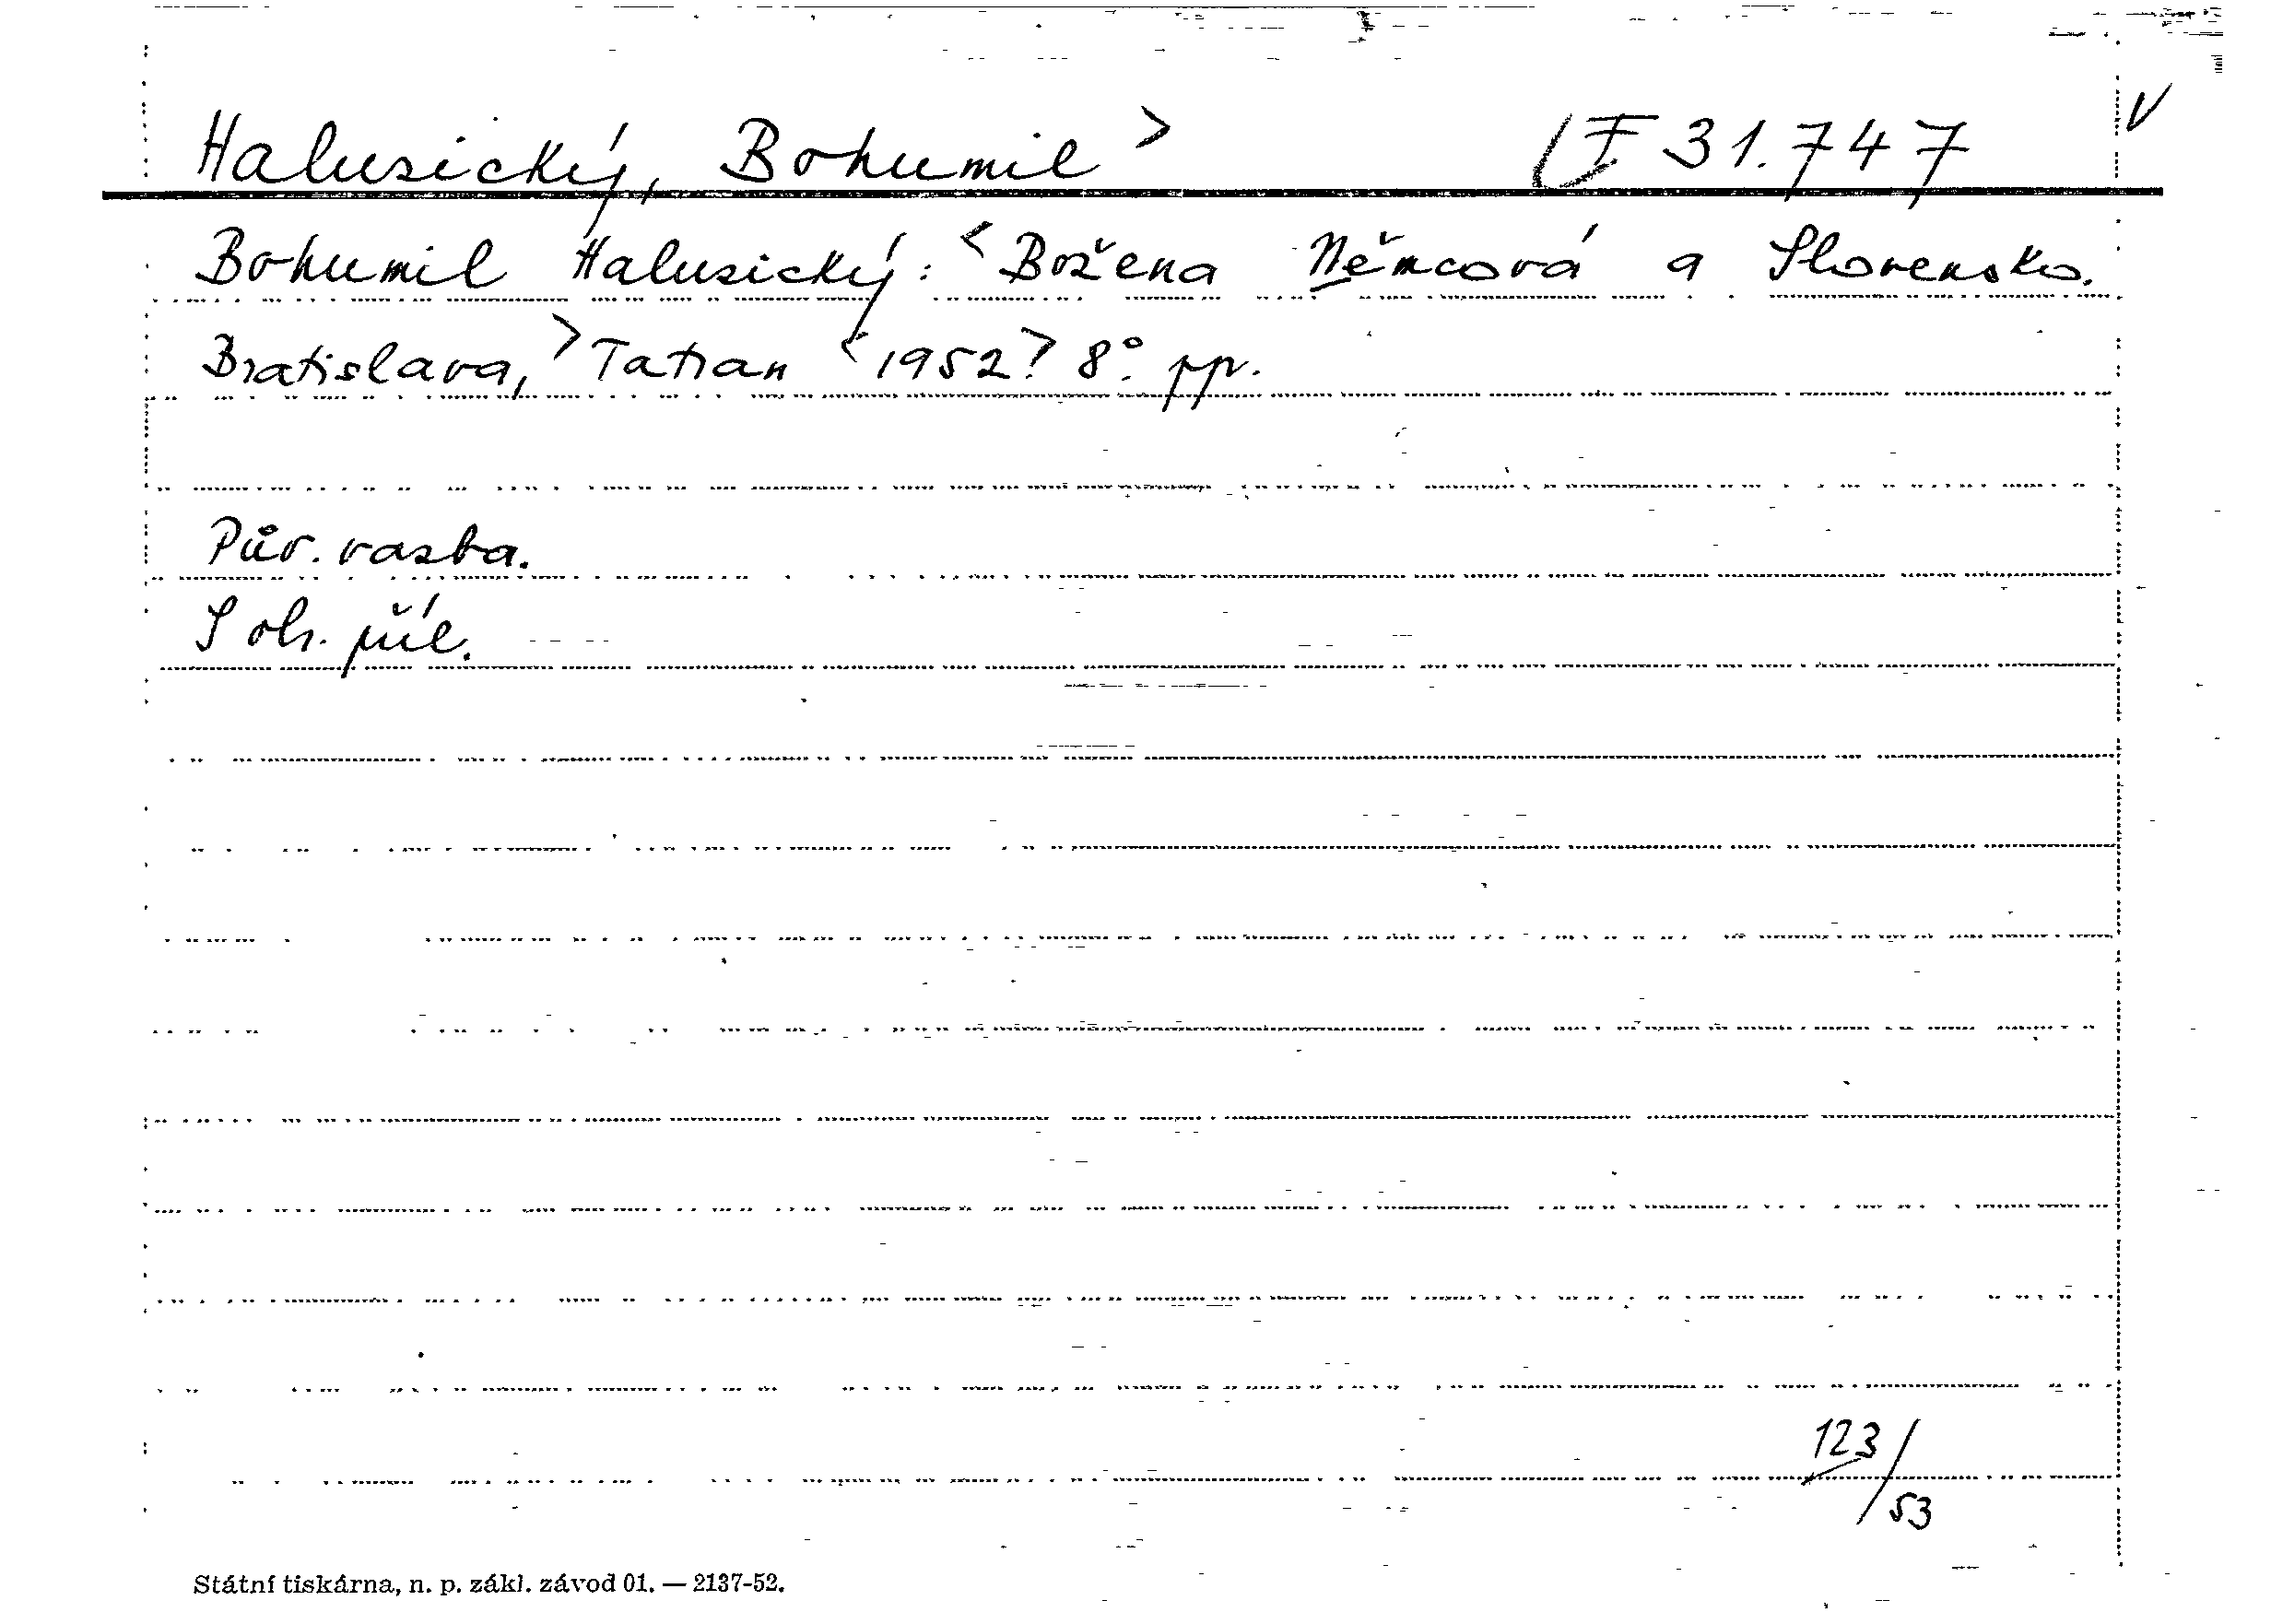 Halusický, Bohumil> F 31.747 V
Bohumil Halusický: <Božena Němcová a Slovensko.
Bratislava,> Tatran <1952> 8°. pp.
Pův. vazba.
S obr. příl.
123/53
Státní tiskárna, n. p. zákl. závod 01. — 2137-52.